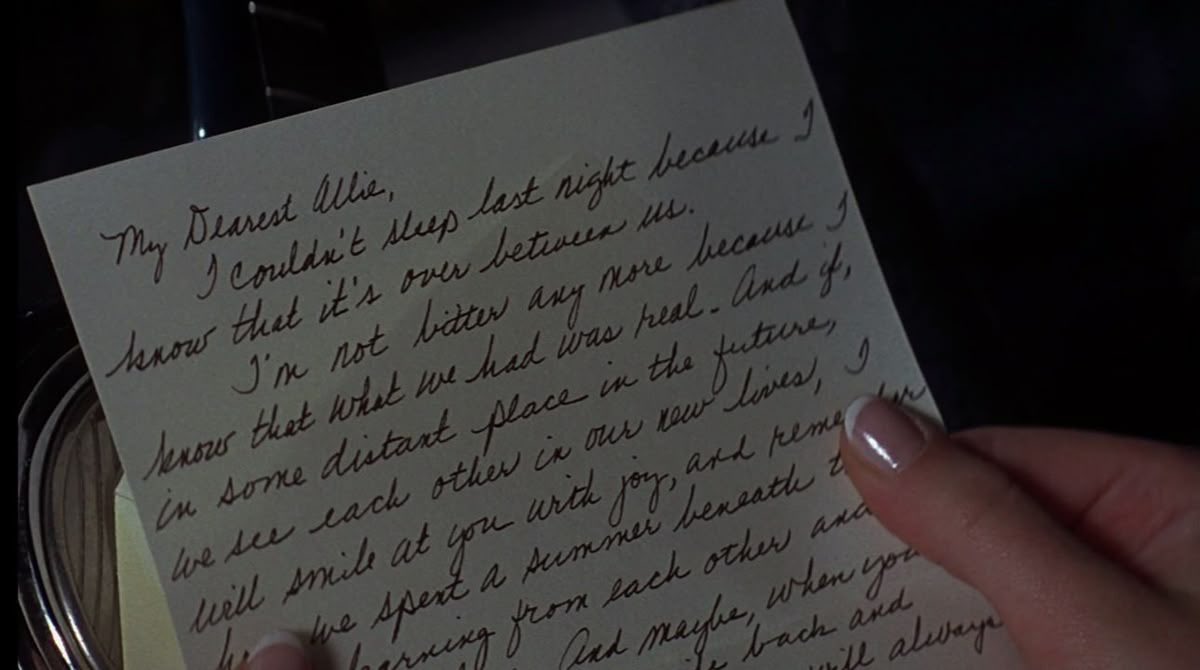 My Dearest Allie,
I couldn't sleep last night because I
know that it's over between us.
I'm not bitter any more because I
know that what we had was real. And if,
in some distant place in the future,
we see each other in our new lives, I
will smile at you with joy, and remember
we spent a summer beneath
learning from each other and
And maybe, when you
back and
will always